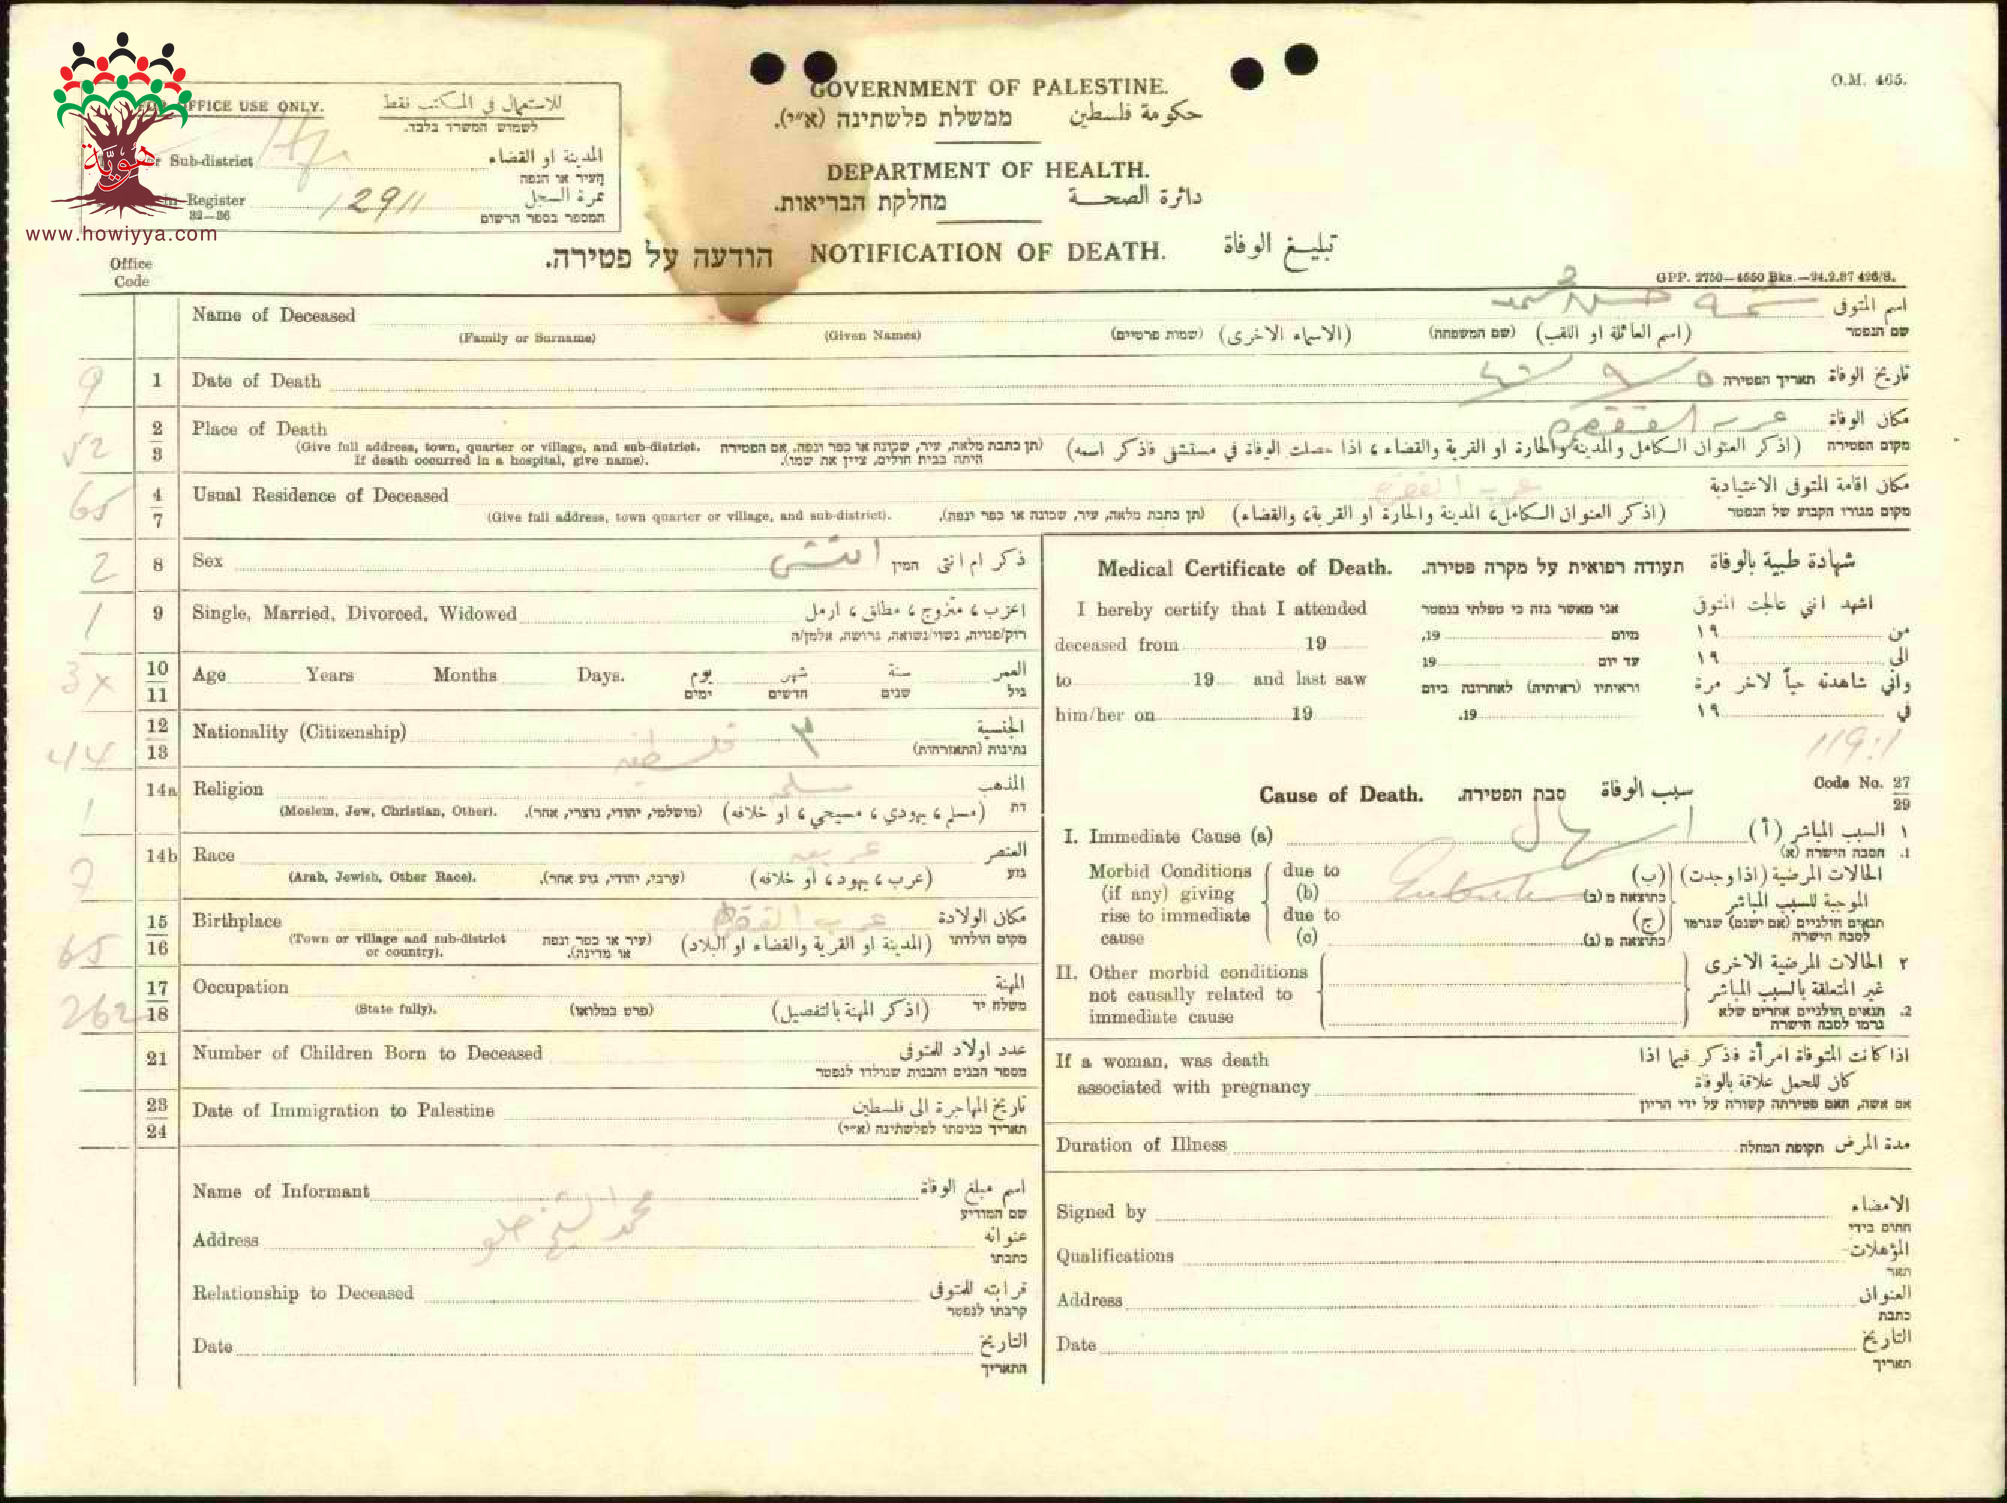 هوية
www.howiyya.com
O.M. 465.
FOR OFFICE USE ONLY. للاستعمال في المكتب فقط
לשמוש המשרד בלבד.
or Sub-district المدينة او القضاء
העיר או הנפה
in Register 12911 نمرة السجل
32—36 המספר בספר הרשום
GOVERNMENT OF PALESTINE.
ממשלת פלשתינה (א״י). حكومة فلسطين
DEPARTMENT OF HEALTH.
מחלקת הבריאות. دائرة الصحة
הודעה על פטירה. NOTIFICATION OF DEATH. تبليغ الوفاة
Office
Code
GPP. 2750—4550 Bks.—24.2.37 426/S.
Name of Deceased اسم المتوفى
(Family or Surname) (Given Names) (שמות פרטיים) (الاسماء الاخرى) (שם המשפחה) (اسم العائلة او اللقب) שם הנפטר
9 1 Date of Death ٥ / ٩ / ٤٦ תאריך הפטירה تاريخ الوفاة
52 2 3 Place of Death عرب الفقرا مكان الوفاة
(Give full address, town, quarter or village, and sub-district. (תן כתבת מלאה, עיר, שכונה או כפר ונפה. אם הפטירה (اذكر العنوان الكامل والمدينة والحارة او القرية والقضاء، اذا حصلت الوفاة في مستشفى فاذكر اسمه) מקום הפטירה
If death occurred in a hospital, give name). היתה בבית חולים, ציין את שמו).
65 4 7 Usual Residence of Deceased عرب الفقرا مكان اقامة المتوفى الاعتيادية
(Give full address, town quarter or village, and sub-district). (תן כתבת מלאה, עיר, שכונה או כפר ונפה). (اذكر العنوان الكامل، المدينة والحارة او القرية، والقضاء) מקום מגורו הקבוע של הנפטר
2 8 Sex انثى המין ذكر ام انثى
1 9 Single, Married, Divorced, Widowed اعزب، متزوج، مطلق، ارمل
רוק/פנויה, נשוי/נשואה, גרושה, אלמן/ה
3x 10 11 Age Years Months Days. يوم شهر سنة العمر
ימים חדשים שנים גיל
44 12 13 Nationality (Citizenship) فلسطينيه ٣ الجنسية
נתינות (התאזרחות)
1 14a Religion مسلمه المذهب
(Moslem, Jew, Christian, Other). (מושלמי, יהודי, נוצרי, אחר). (مسلم، يهودي، مسيحي، او خلافه) דת
7 14b Race عربيه العنصر
(Arab, Jewish, Other Race). (ערבי, יהודי, גוע אחר). (عرب، يهود، او خلافه) גזע
65 15 16 Birthplace عرب الفقرا مكان الولادة
(Town or village and sub-district (עיר או כפר ונפה (المدينة او القرية والقضاء او البلاد) מקום הולדתו
or country). או מדינה).
262 17 18 Occupation المهنة
(State fully). (פרט במלואו) (اذكر المهنة بالتفصيل) משלח יד
21 Number of Children Born to Deceased عدد اولاد المتوفى
מספר הבנים והבנות שנולדו לנפטר
23 24 Date of Immigration to Palestine تاريخ المهاجرة الى فلسطين
תאריך כניסתו לפלשתינה (א״י)
Name of Informant محمد الشيخ حلو اسم مبلغ الوفاة
שם המודיע
Address عنوانه
כתבתו
Relationship to Deceased قرابته للمتوفى
קרבתו לנפטר
Date التاريخ
התאריך
Medical Certificate of Death. תעודה רפואית על מקרה פטירה. شهادة طبية بالوفاة
I hereby certify that I attended אני מאשר בזה כי טפלתי בנפטר اشهد انني عالجت المتوفى
deceased from 19 19, מיום ١٩ من
to 19 and last saw 19 עד יום ١٩ الى
וראיתיו (ראיתיה) לאחרונה ביום واني شاهدته حياً لاخر مرة
him/her on 19 19. ١٩ في
119:1
Code No. 27 29
Cause of Death. סבת הפטירה. سبب الوفاة
I. Immediate Cause (a) اسهال السبب المباشر (أ) ١
1. הסבה הישרה (א)
Morbid Conditions due to الحالات المرضية (اذا وجدت) (ب)
(if any) giving (b) Enteritis כתוצאה מ (ב) الموجبة للسبب المباشر
rise to immediate due to (ج) תנאים חולניים (אם ישנם) שגרמו
cause (c) כתוצאה מ (ג) לסבה הישרה
II. Other morbid conditions الحالات المرضية الاخرى ٢
not causally related to غير المتعلقة بالسبب المباشر
immediate cause 2. תנאים חולניים אחרים שלא
גרמו לסבה הישרה
If a woman, was death اذا كانت المتوفاة امرأة فذكر فيما اذا
associated with pregnancy كان للحمل علاقة بالوفاة
אם אשה, האם פטירתה קשורה על ידי הריון
Duration of Illness תקופת המחלה مدة المرض
Signed by الامضاء
חתום בידי
Qualifications المؤهلات
תאר
Address العنوان
כתבת
Date التاريخ
תאריך